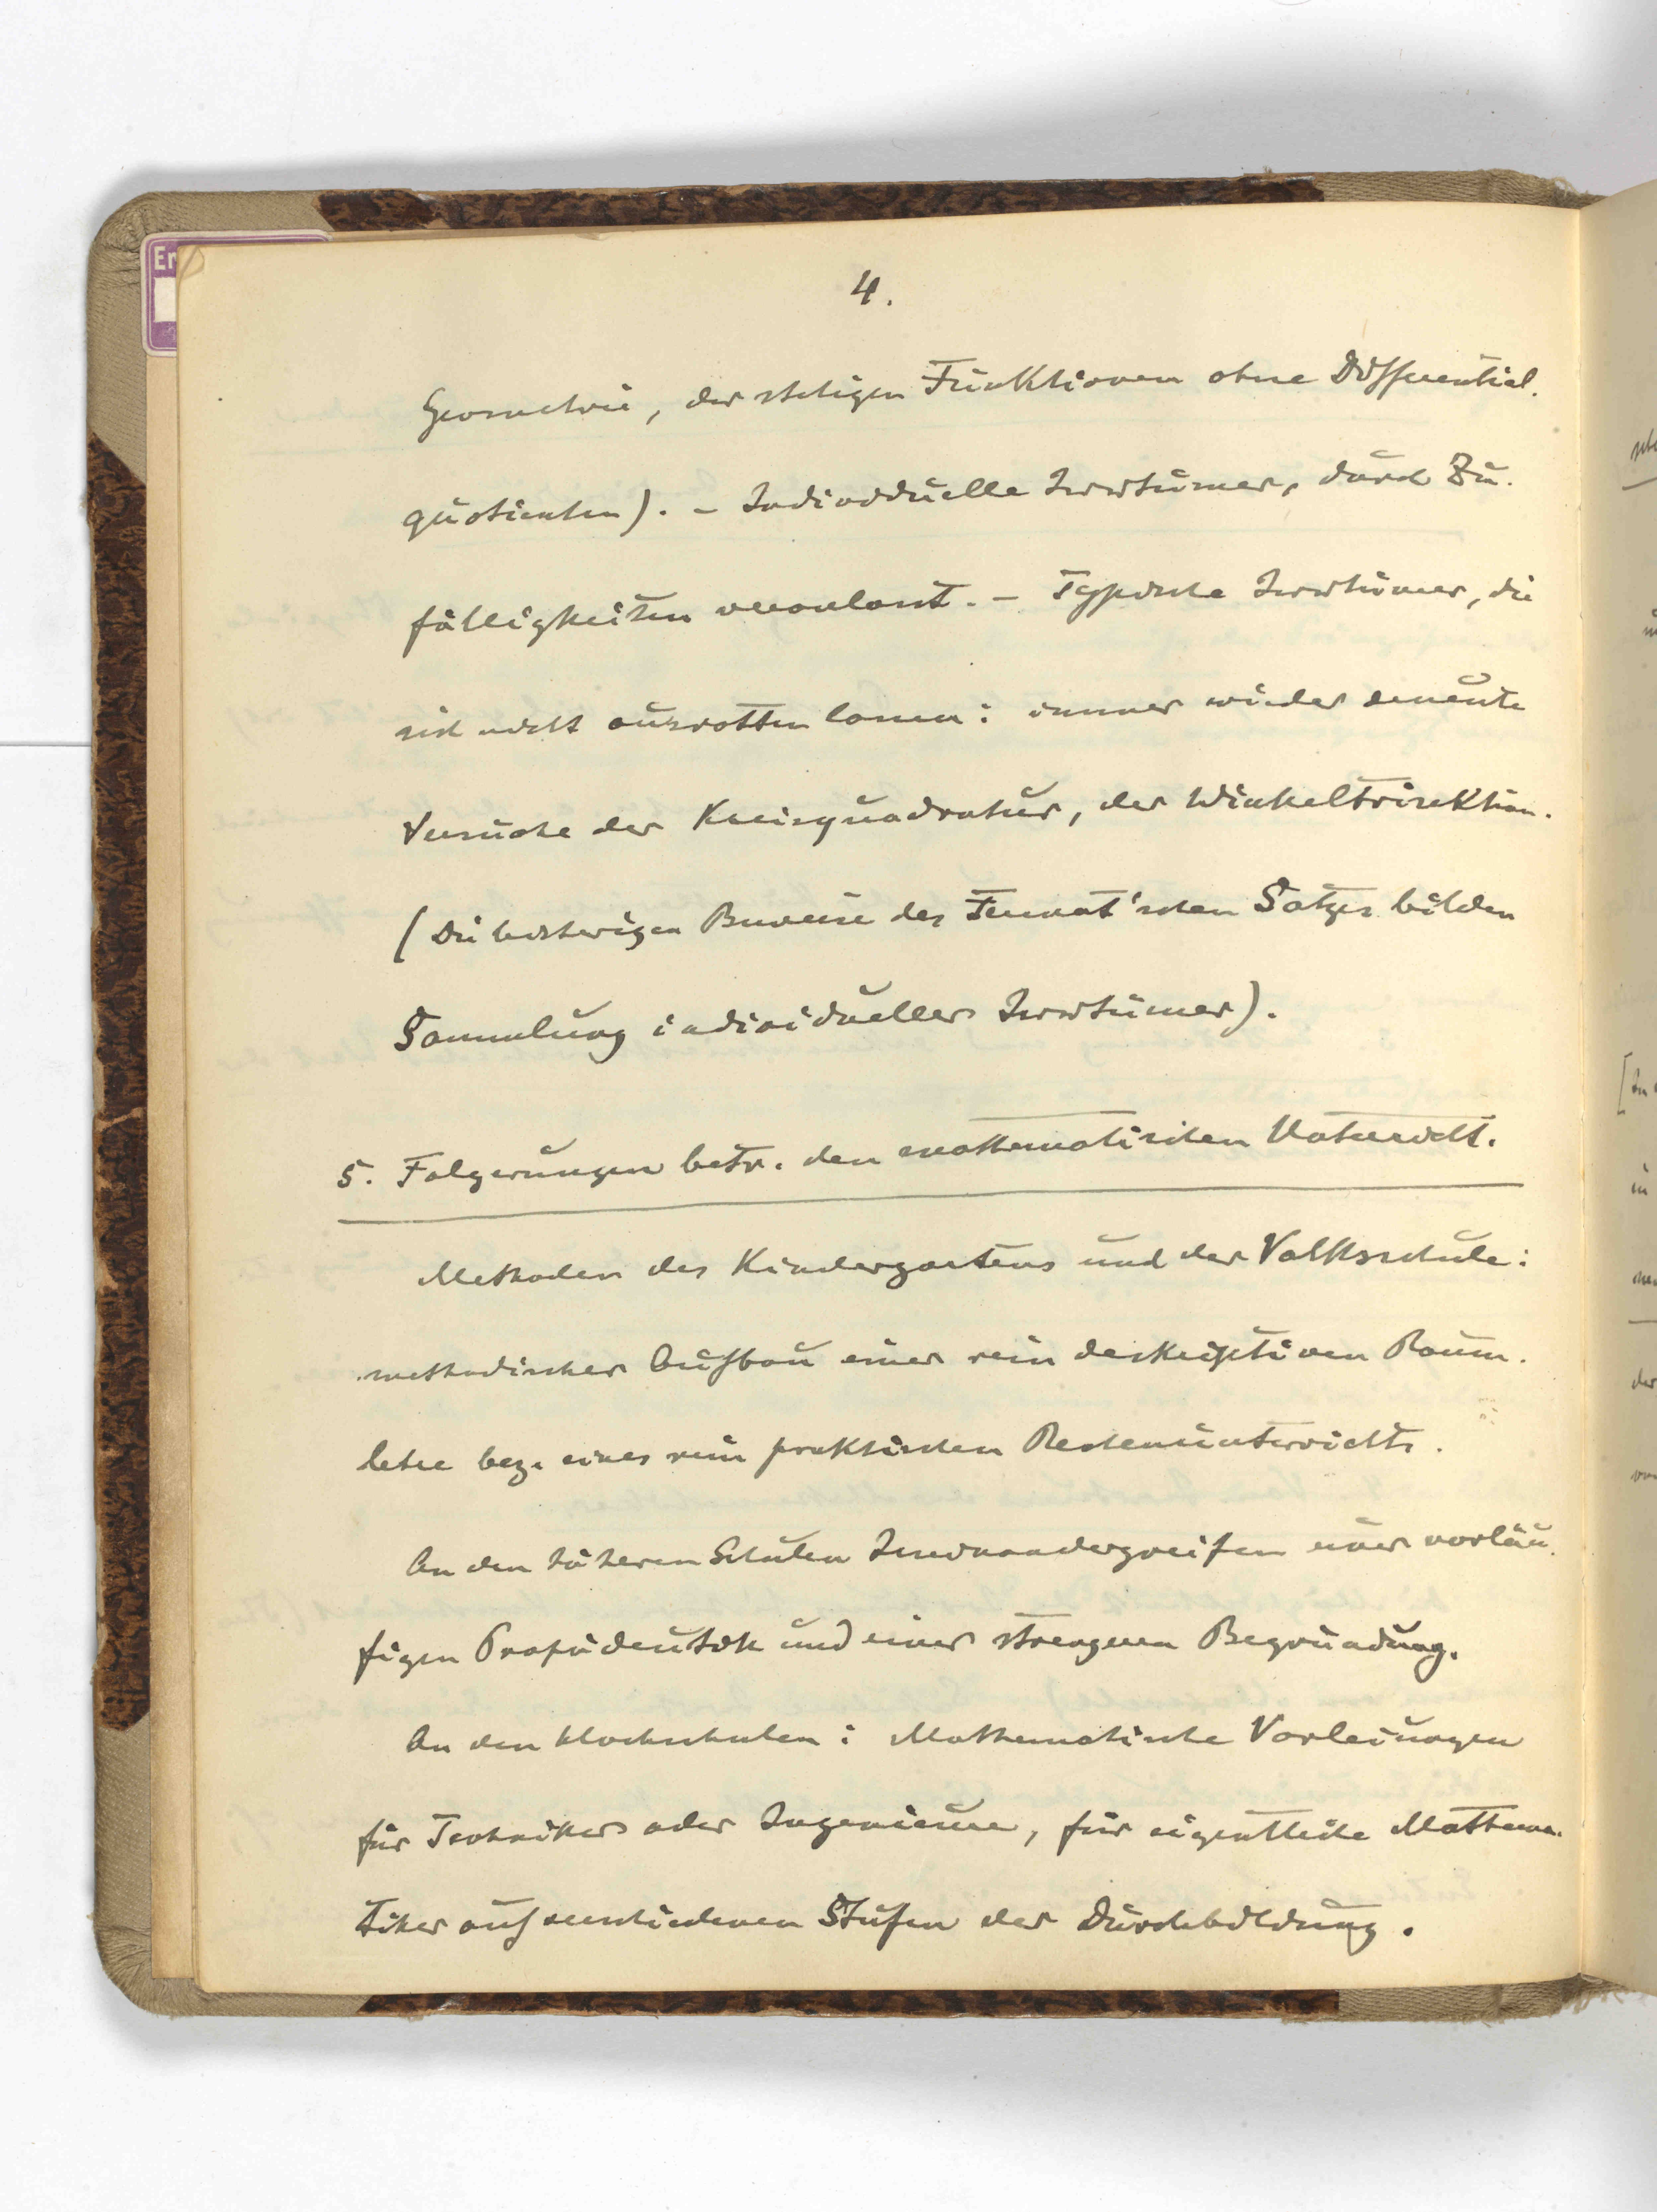 4.
Geometrie, der stetigen Funktionen ohne Differential-
quotienten). – Individuelle Irrtümer, durch Zu-
fälligkeiten veranlasst. – Typische Irrtümer, die
sich nicht ausrotten lassen: immer wieder erneute
Versuche der Kreisquadratur, der Winkeltrisektion.
(Die bisherigen Beweise des Fermat'schen Satzes bilden
Sammlung individueller Irrtümer).
5. Folgerungen betr. den mathematischen Unterricht.
Methoden des Kindergartens und der Volksschule:
methodischer Aufbau einer rein deskriptiven Raum-
lehre bez. eines rein praktischen Rechenunterrichts.
An den höheren Schulen Ineinandergreifen einer vorläu-
figen Propädeutik und einer strengeren Begründung.
An den Hochschulen: Mathematische Vorlesungen
für Techniker oder Ingenieure, für eigentliche Mathema-
tiker auf verschiedenen Stufen der Durchbildung.
Er